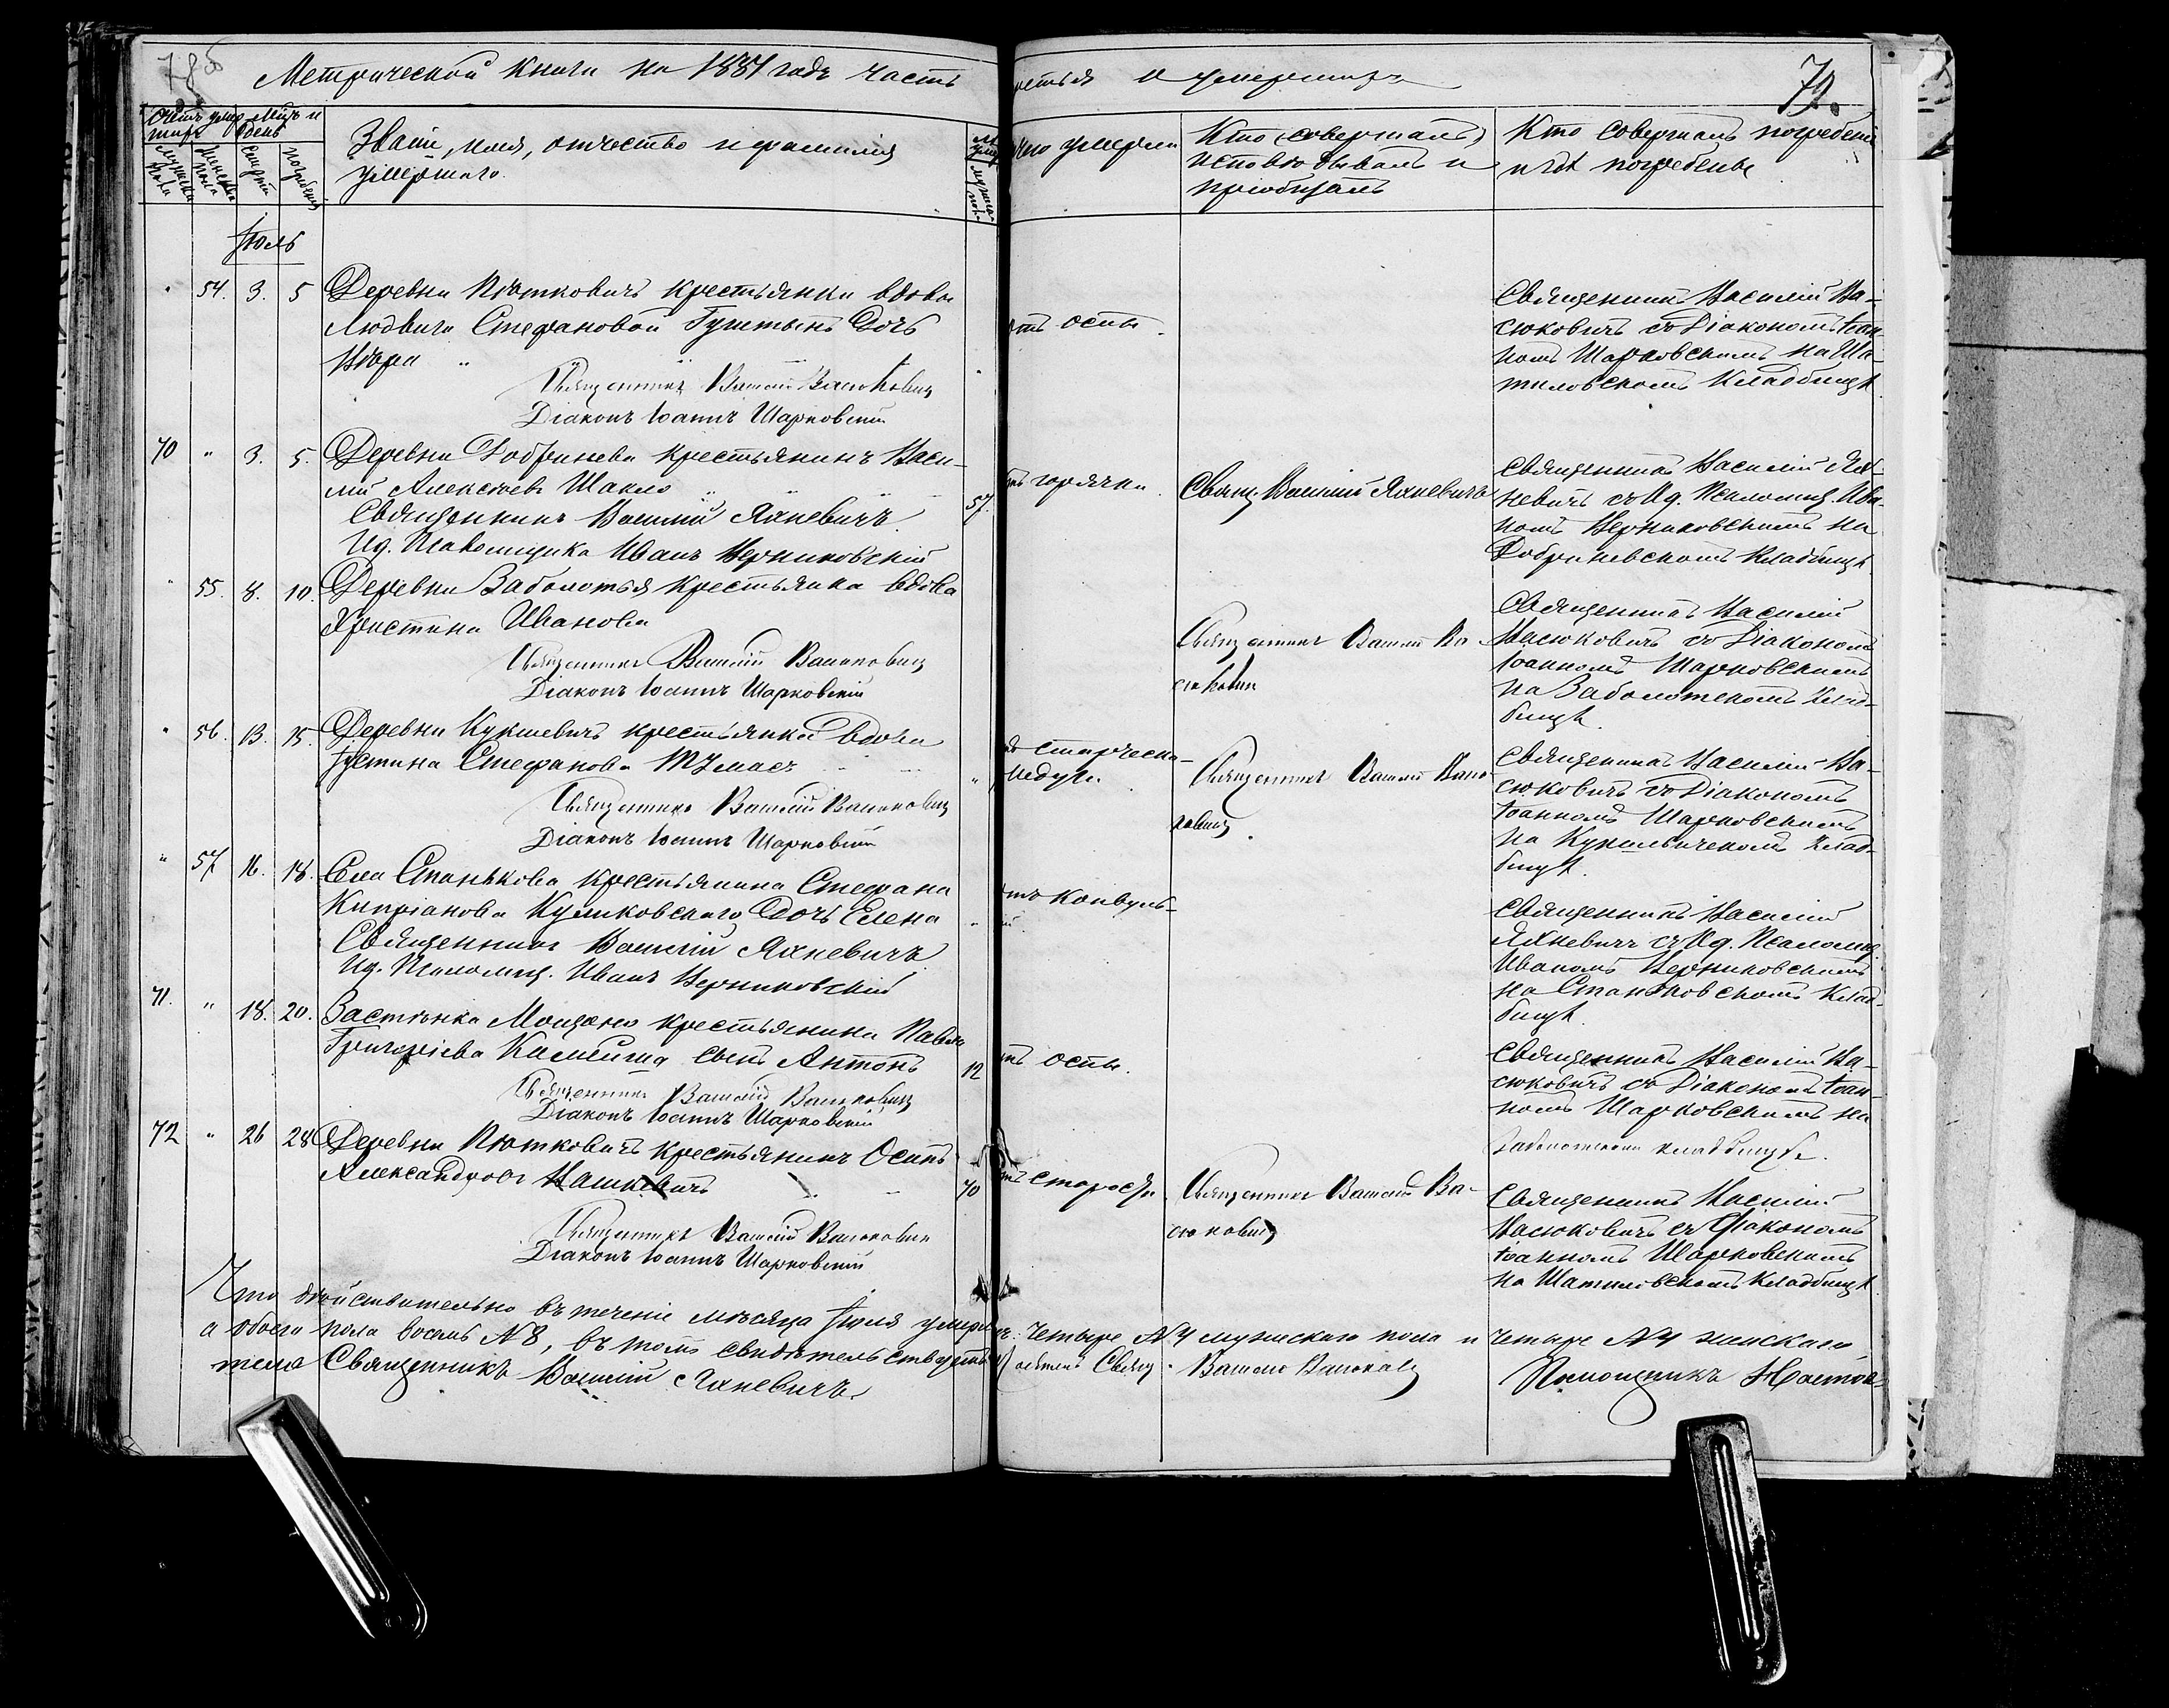 78об
Метрической книги на 1881 годъ часть
ретья о умершихъ
79.
Счетъ умер Мѣцъ и
шихъ день
Мужеска пола
Женска пола
Смерти
Погребенія
Званіе, имя, отчество и фамилія
умершаго.
чего умерли
Кто (совершалъ)
исповѣдывалъ и
пріобщалъ
Кто совершалъ погребеніе
и гдѣ погребены
Іюль
" 54. 3. 5 Деревни Пѣтковичъ крестьянки вдовы
Людвиги Стефановой дочь
Вѣра "
Священникъ Василій Васюковичъ
Діаконъ Іоаннъ Шарковскій
отъ оспы.
Священникъ Василій Ва-
сюковичъ съ Діакономъ Іоан-
номъ Шарковскимъ на Ша-
тиловскомъ Кладбищѣ.
70 " 3. 5. Деревни Добринева крестьянинъ Васи-
лій Алексѣевъ Шакло
57.
Священникъ Василій Яхневичъ
Ид. Псаломщика Иванъ Верниковскій
отъ горячки.
Священ. Василій Яхневичъ
Священникъ Василій Ях-
невичъ съ Ид. Псаломщ. Ива-
номъ Верниковскимъ на
Добриневскомъ Кладбищѣ.
" 55. 8. 10. Деревни Заболотья крестьянка вдова
Христина Иванова
Священникъ Василій Васюковичъ
Діаконъ Іоаннъ Шарковскій
Священникъ Василій Ва-
сюковичъ
Священникъ Василій
Васюковичъ съ Діакономъ
Іоанномъ Шарковскимъ
на Заболотскомъ Клад-
бищѣ.
" 56. 13. 15. Деревни Кукшевичъ крестьянка вдова
Іустина Стефанова
Священникъ Василій Васюковичъ
Діаконъ Іоаннъ Шарковскій
старческа-
недуга.
Священникъ Василій Васю-
ковичъ.
Священникъ Василій Ва-
сюковичъ съ Діакономъ
Іоанномъ Шарковскимъ
на Кукшевичскомъ Клад-
бищѣ.
" 57 16. 18. Села Станькова крестьянина Стефана
Кипріанова Куликовскаго дочь Елена
Священникъ Василій Яхневичъ
Ид. Псаломщ. Иванъ Верниковскій
отъ конвуль-
ій.
Священникъ Василій
Яхневичъ съ Ид. Псаломщ.
Иваномъ Верниковскимъ
на Станьковскомъ Клад-
бищѣ.
71. " 18. 20. Застѣнка крестьянина Павла
Григоріева сынъ Антонъ
12
Священникъ Василій Васюковичъ
Діаконъ Іоаннъ Шарковскій
отъ оспы.
Священникъ Василій Ва-
сюковичъ съ Діакономъ Іоан-
номъ Шарковскимъ на
Заболотскомъ кладбищѣ.
72 " 26 28 Деревни Пѣтковичъ крестьянинъ Осипъ
Александровъ Нашкевичъ
70
Священникъ Василій Васюковичъ
Діаконъ Іоаннъ Шарковскій
отъ старости.
Священникъ Василій Ва-
сюковичъ
Священникъ Василій
Васюковичъ съ Діакономъ
Іоанномъ Шарковскимъ
на Шатиловскомъ Кладбищѣ.
Что дѣйствительно въ теченіе мѣсяца Іюля умерло. Четыре №4 мужскаго пола и четыре №4 женскаго,
а обоего пола восемь №8, въ томъ свидѣтельствуетъ Священ. Василій Васюковичъ Помощникъ Настоя-
теля Священникъ Василій Яхневичъ.